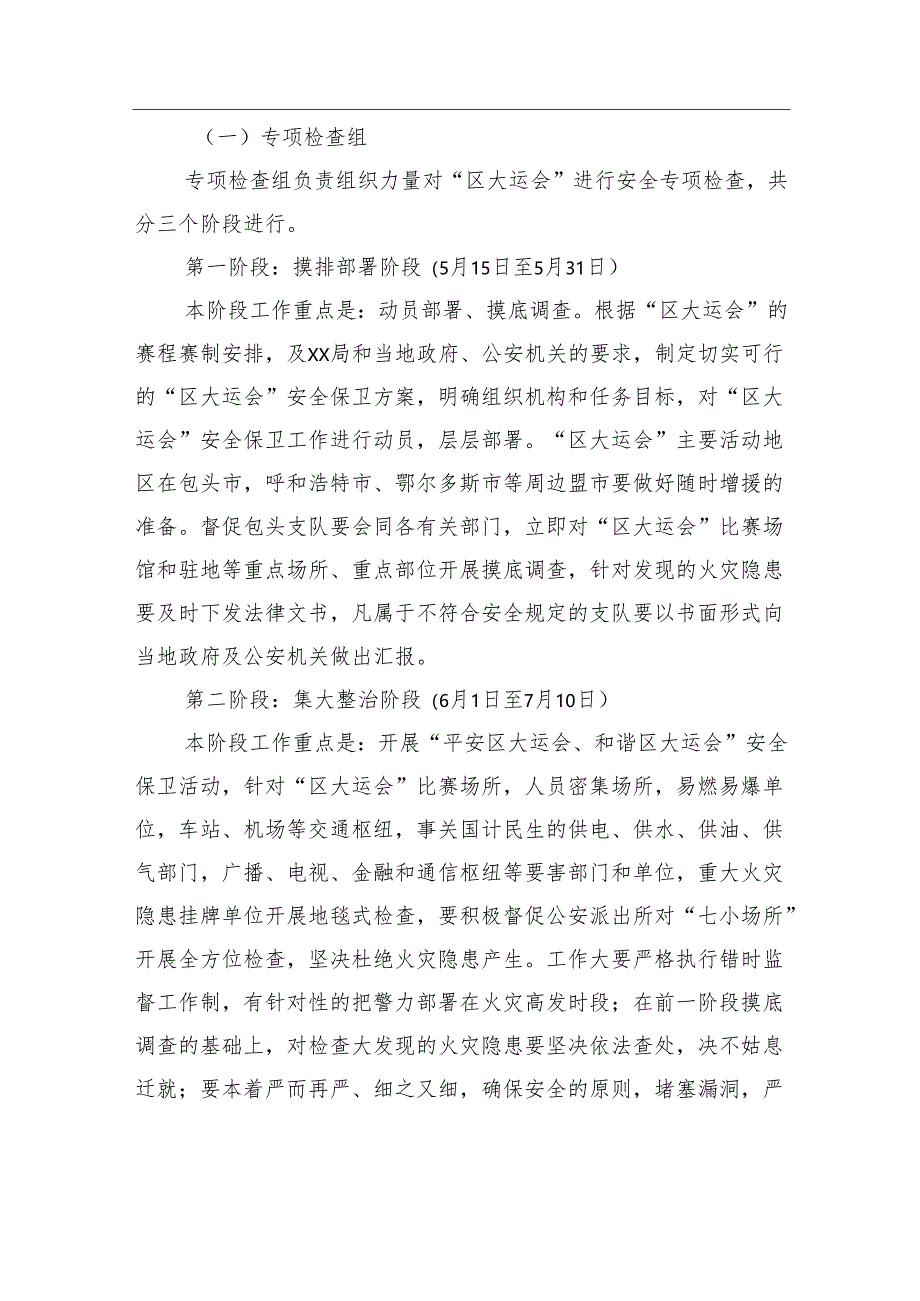 （一）专项检查组
专项检查组负责组织力量对“区大运会”进行安全专项检查，共
分三个阶段进行。
第一阶段：摸排部署阶段 (5月15日至5月31日）
本阶段工作重点是：动员部署、摸底调查。根据“区大运会”的
赛程赛制安排，及XX局和当地政府、公安机关的要求，制定切实可行
的“区大运会”安全保卫方案，明确组织机构和任务目标，对“区大
运会”安全保卫工作进行动员，层层部署。“区大运会”主要活动地
区在包头市，呼和浩特市、鄂尔多斯市等周边盟市要做好随时增援的
准备。督促包头支队要会同各有关部门，立即对“区大运会”比赛场
馆和驻地等重点场所、重点部位开展摸底调查，针对发现的火灾隐患
要及时下发法律文书，凡属于不符合安全规定的支队要以书面形式向
当地政府及公安机关做出汇报。
第二阶段：集大整治阶段 (6月1日至7月10日）
本阶段工作重点是：开展“平安区大运会、和谐区大运会”安全
保卫活动，针对“区大运会”比赛场所，人员密集场所，易燃易爆单
位，车站、机场等交通枢纽，事关国计民生的供电、供水、供油、供
气部门，广播、电视、金融和通信枢纽等要害部门和单位，重大火灾
隐患挂牌单位开展地毯式检查，要积极督促公安派出所对“七小场所”
开展全方位检查，坚决杜绝火灾隐患产生。工作大要严格执行错时监
督工作制，有针对性的把警力部署在火灾高发时段；在前一阶段摸底
调查的基础上，对检查大发现的火灾隐患要坚决依法查处，决不姑息
迁就；要本着严而再严、细之又细，确保安全的原则，堵塞漏洞，严